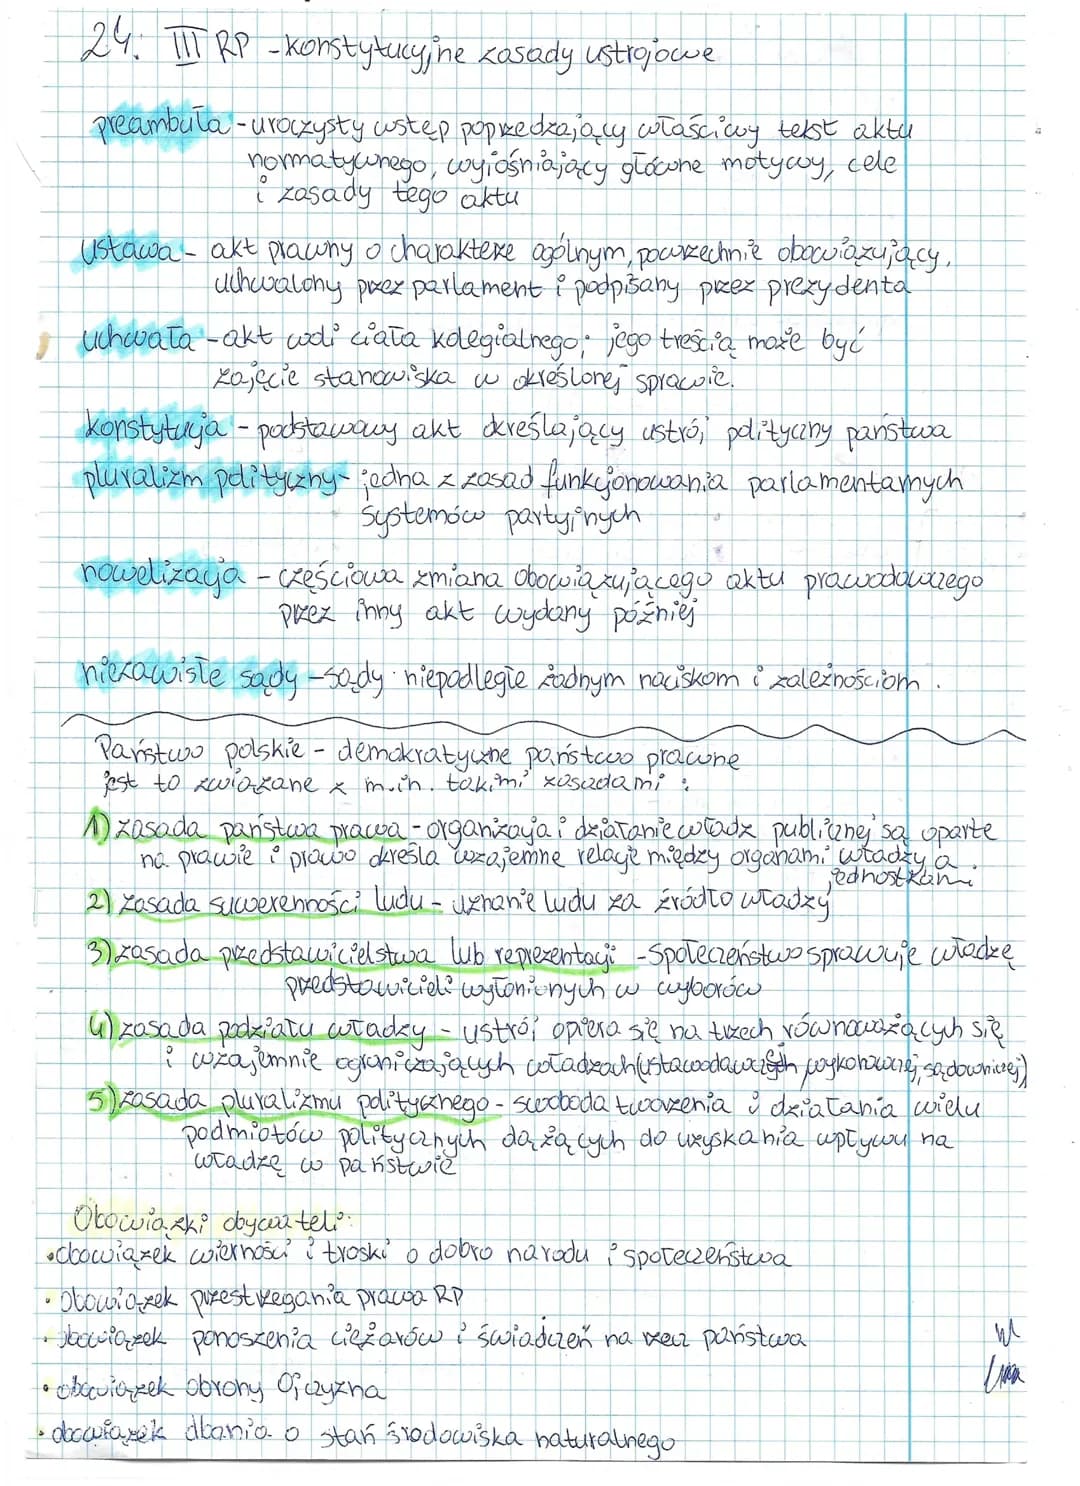 24. III RP - konstytucyjne zasady ustrojowe
preambuła - uroczysty wstęp poprzedzający właściwy tekst aktu
normatywnego, wyjaśniający główne motywy, cele
i zasady tego aktu
ustawa - akt prawny o charakterze ogólnym, powrzechnie obowiązujący,
uchwalony przez parlament i podpisany przez prezydenta
uchwała - akt woli ciała kolegialnego; jego treścią może być
zajęcie stanowiska w określonej sprawie.
konstytucja - podstawowy akt określający ustrój polityczny państwa
pluralizm polityczny - jedna z zasad funkcjonowania parlamentarnych
systemów partyjnych
nowelizacja - częściowa zmiana obowiązującego aktu prawodawczego
przez inny akt wydany później
niezawisłe sądy - sądy niepodległe żadnym naciskom i zależnościom.
Państwo polskie - demokratyczne państwo prawne
jest to związane z m.in. takimi zasadami :
1) zasada państwa prawa - organizacja i działanie władz publicznej są oparte
na prawie i prawo określa wzajemne relacje między organami władzy a
jednostkami
2) zasada suwerenności ludu - uznanie ludu za źródło władzy
3) zasada przedstawicielstwa lub reprezentacji - społeczeństwo sprawuje władzę
przedstawicieli wyłonionych w wyborów
4) zasada podziału władzy - ustrój opiera się na trzech równoważących się
i wzajemnie ograniczających władzach (ustawodawczej, wykonawczej, sądowniczej)
5) zasada pluralizmu politycznego - swoboda tworzenia i działania wielu
podmiotów politycznych dążących do uzyskania wpływu na
władzę w państwie
Obowiązki obywateli:
• obowiązek wierności i troski o dobro narodu i społeczeństwa
• obowiązek przestrzegania prawa RP
• obowiązek ponoszenia ciężarów i świadczeń na rzecz państwa
• obowiązek obrony Ojczyzna
• obowiązek dbania o stan środowiska naturalnego